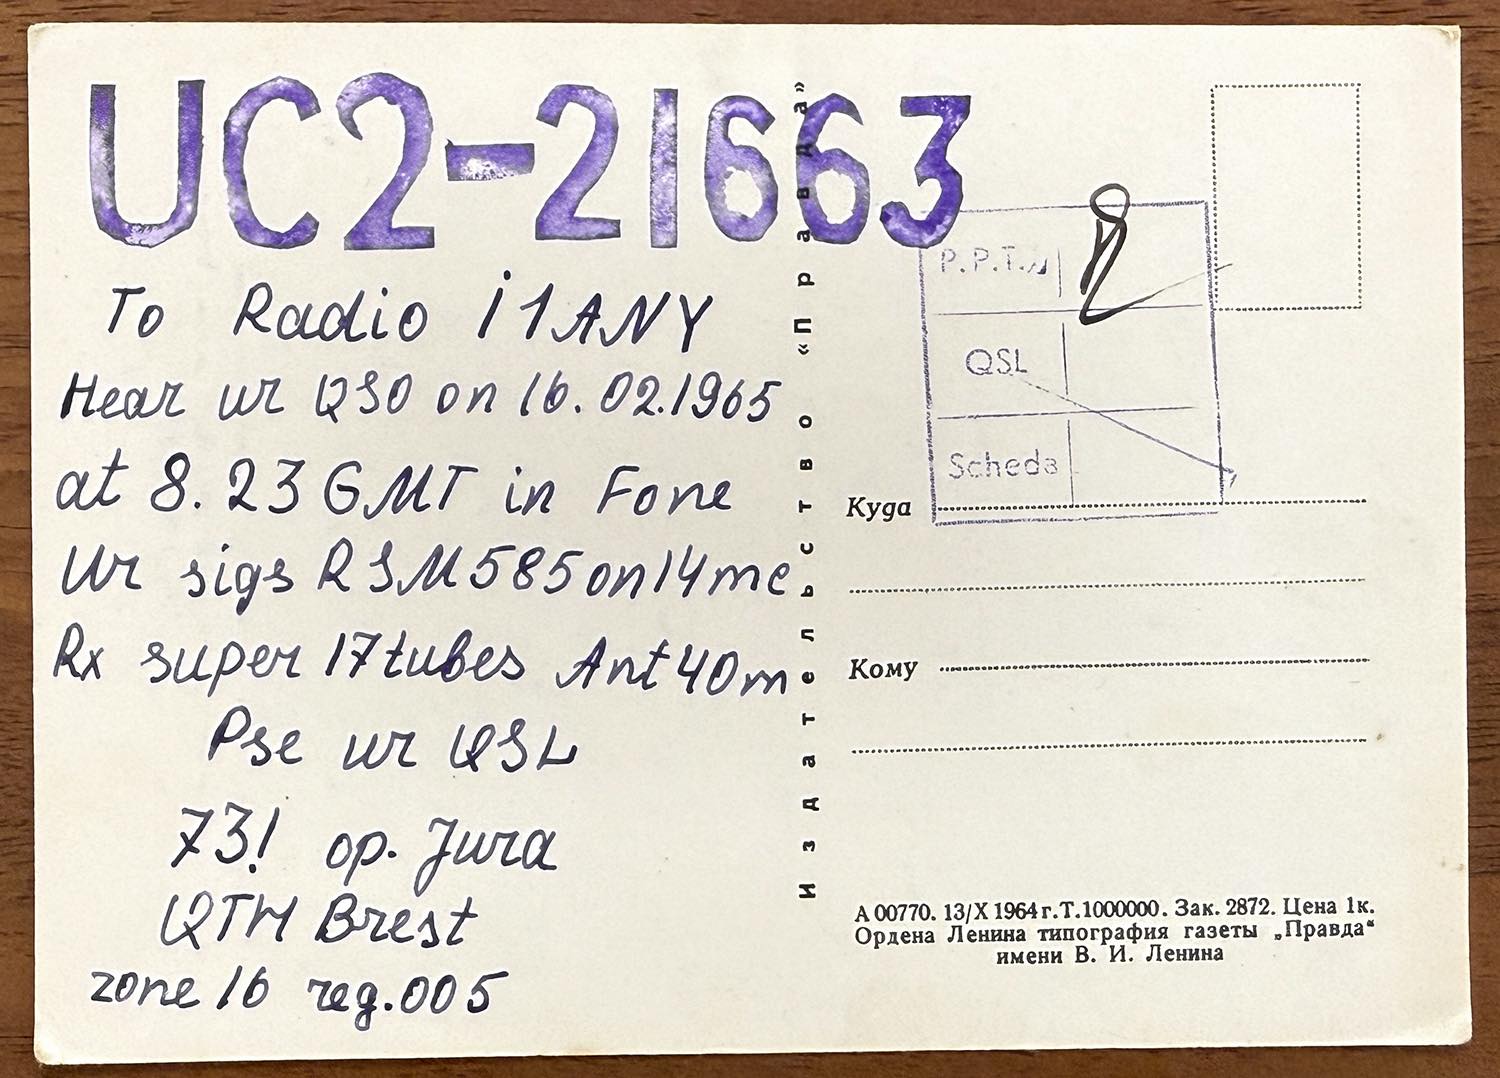 UC2-21663
To Radio i1ANY
Hear ur QSO on 16.02.1965
at 8.23 GMT in Fone
Ur sigs RSM 585 on 14 mc
Rx super 17 tubes Ant 40m
Pse ur QSL
73! op. Jura
QTH Brest
zone 16 reg. 005
Издательство «Правда»
P.P.T.
QSL
Scheda
Куда
Кому
А 00770. 13/X 1964 г. Т. 1000000. Зак. 2872. Цена 1к.
Ордена Ленина типография газеты „Правда“
имени В. И. Ленина